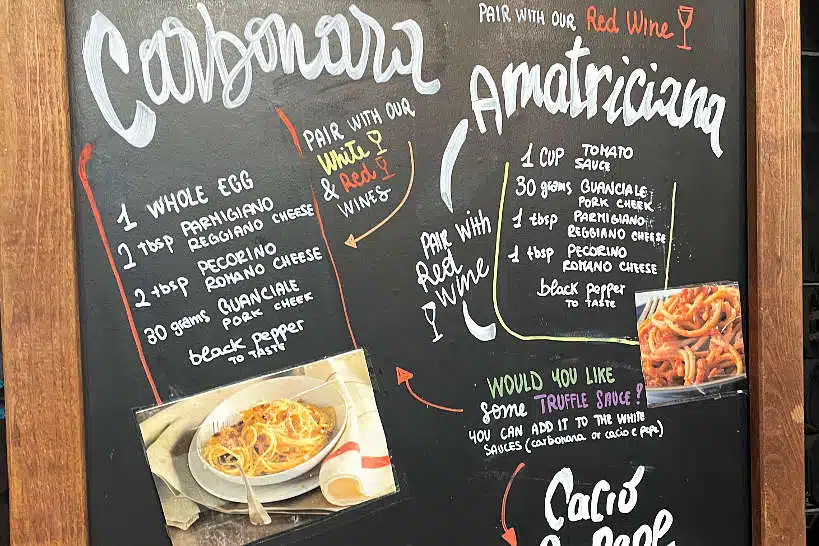 Carbonara
PAIR WITH OUR
White
& Red
WINES
1 WHOLE EGG
2 tbsp PARMIGIANO
REGGIANO CHEESE
2 tbsp PECORINO
ROMANO CHEESE
30 grams GUANCIALE
PORK CHEEK
black pepper
TO TASTE
PAIR WITH OUR Red Wine
Amatriciana
1 CUP TOMATO
SAUCE
30 grams GUANCIALE
PORK CHEEK
1 tbsp PARMIGIANO
REGGIANO CHEESE
1 tbsp PECORINO
ROMANO CHEESE
black pepper
TO TASTE
PAIR WITH
Red
Wine
WOULD YOU LIKE
some TRUFFLE SAUCE?
YOU CAN ADD IT TO THE WHITE
SAUCES (carbonara or cacio e pepe)
Cacio
e Pepe